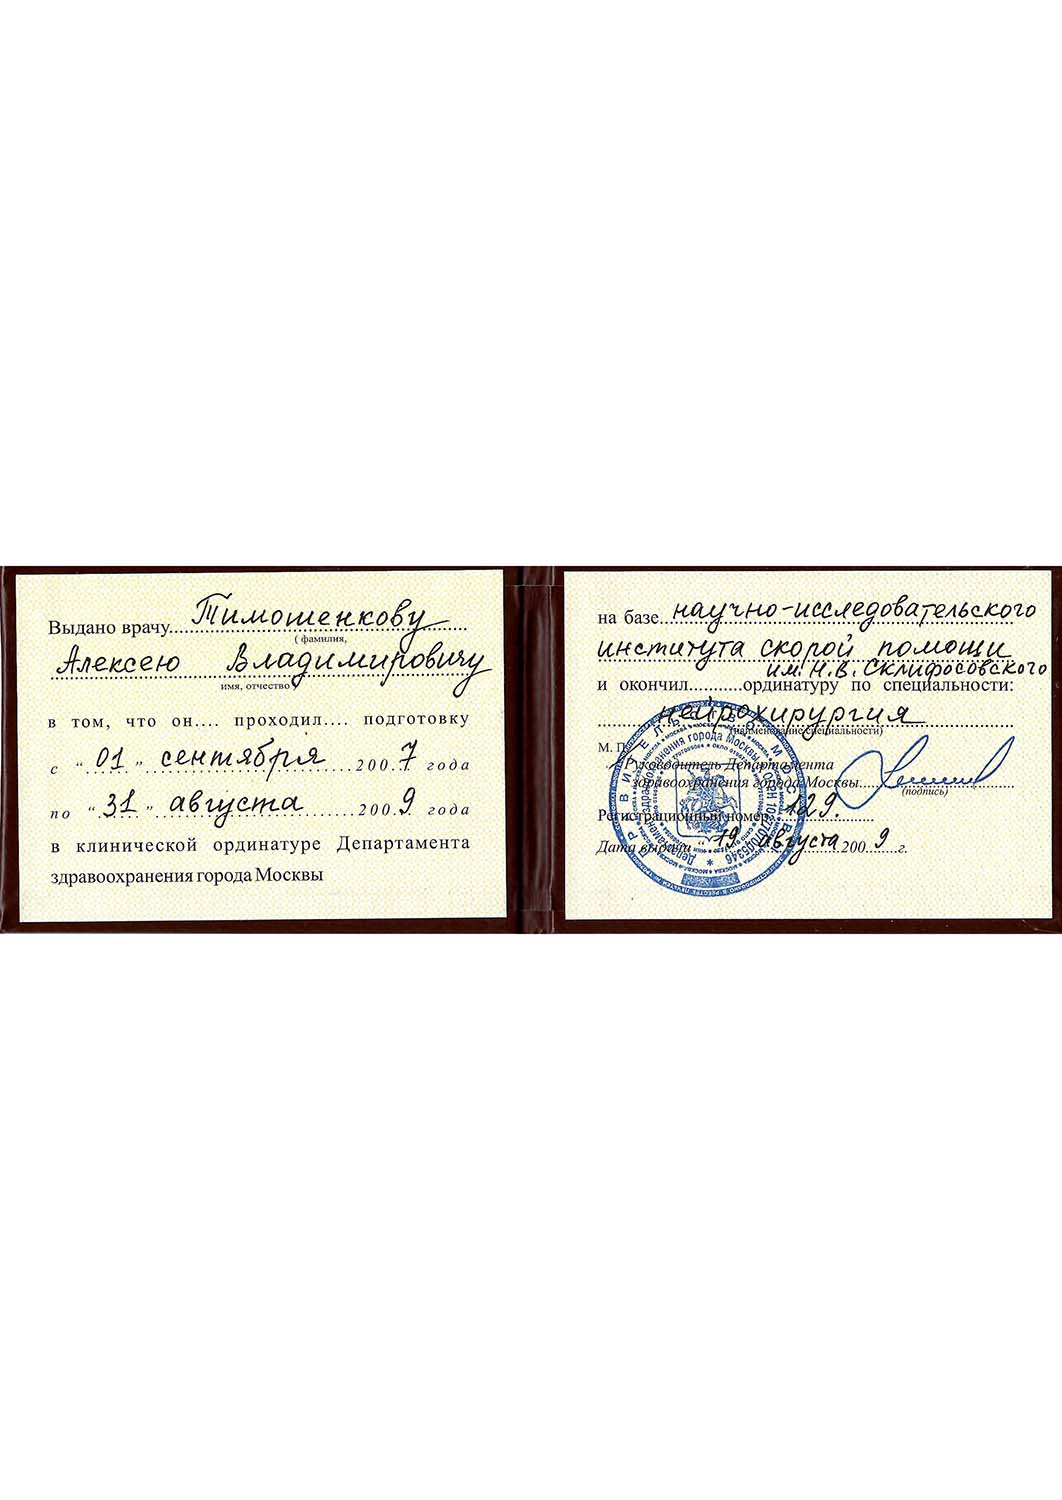 Выдано врачу Тимошенкову
( фамилия,
Алексею Владимировичу
имя, отчество )
в том, что он.... проходил.... подготовку
с “ 01 ” сентября 2007 года
по “ 31 ” августа 2009 года
в клинической ординатуре Департамента
здравоохранения города Москвы
на базе научно-исследовательского
института скорой помощи
им. Н.В. Склифосовского
и окончил...........ординатуру по специальности:
нейрохирургия
(наименование специальности)
М. П.
Руководитель Департамента
здравоохранения города Москвы
(подпись)
Регистрационный номер 129.
Дата выдачи “ 19 августа 2009 г.